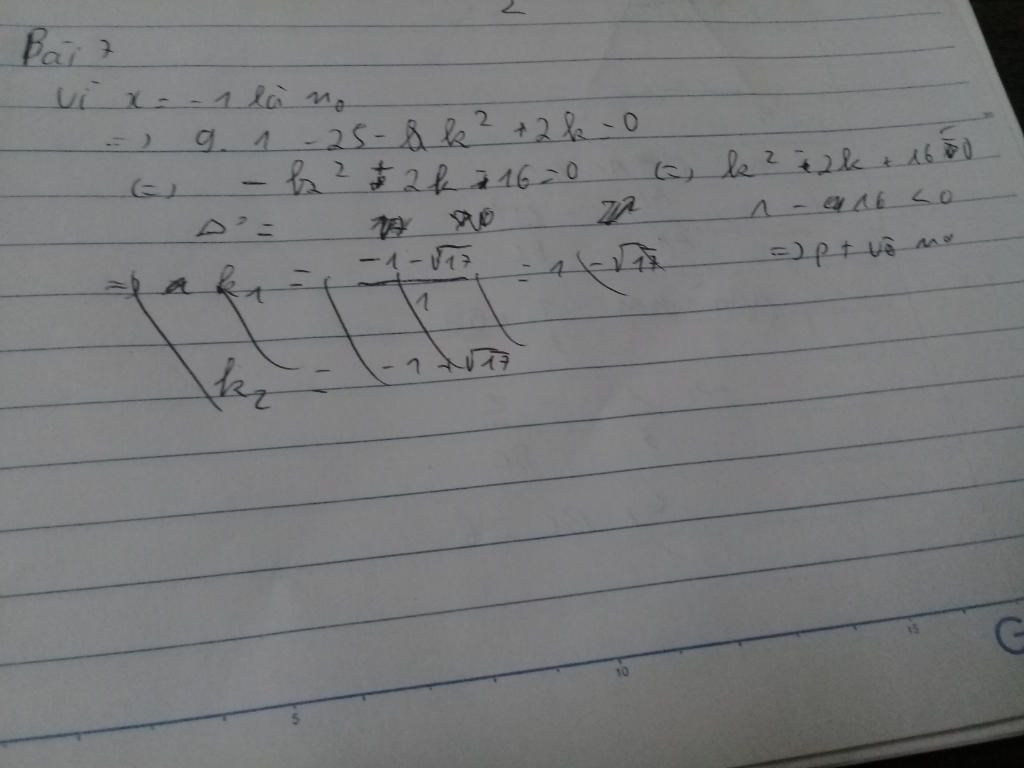 2
Bài 7
Vì x = -1 là n₀
=> 9.1 - 25 - k² + 2k = 0
<=> - k² + 2k - 16 = 0 <=> k² - 2k + 16 = 0
Δ' = 1 - 16 < 0
=> k₁ = (-1 - √17)/1 = 1 - √17 => p + vô n₀
k₂ = -1 + √17
5 10 15
G